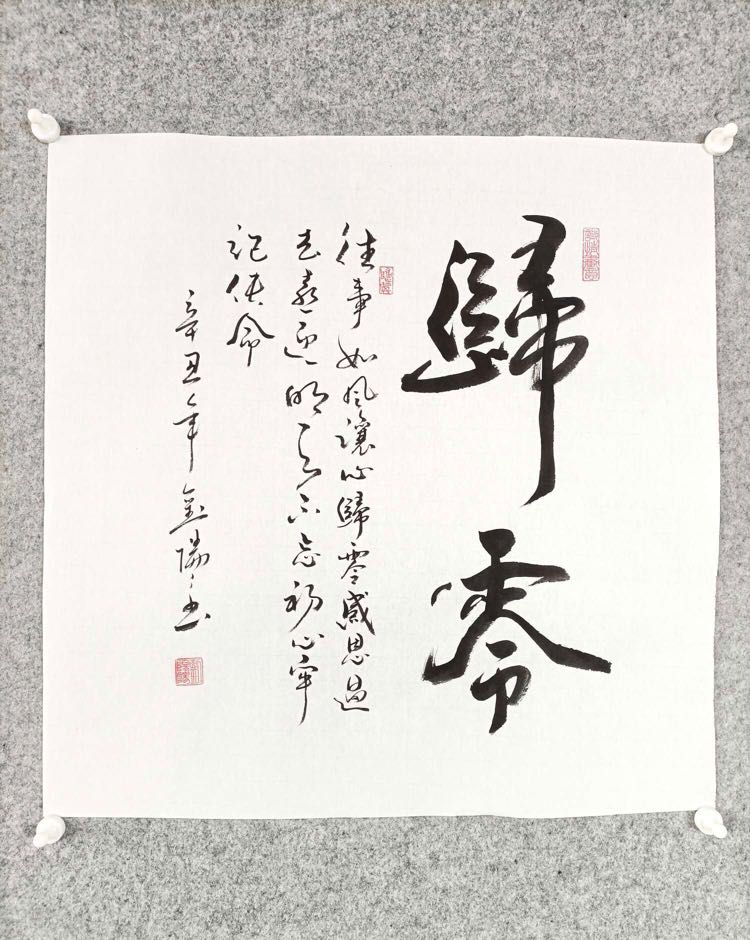 歸零
往事如風讓心歸零感恩過
去喜迎明天不忘初心牢
記使命
辛丑年劉陽書